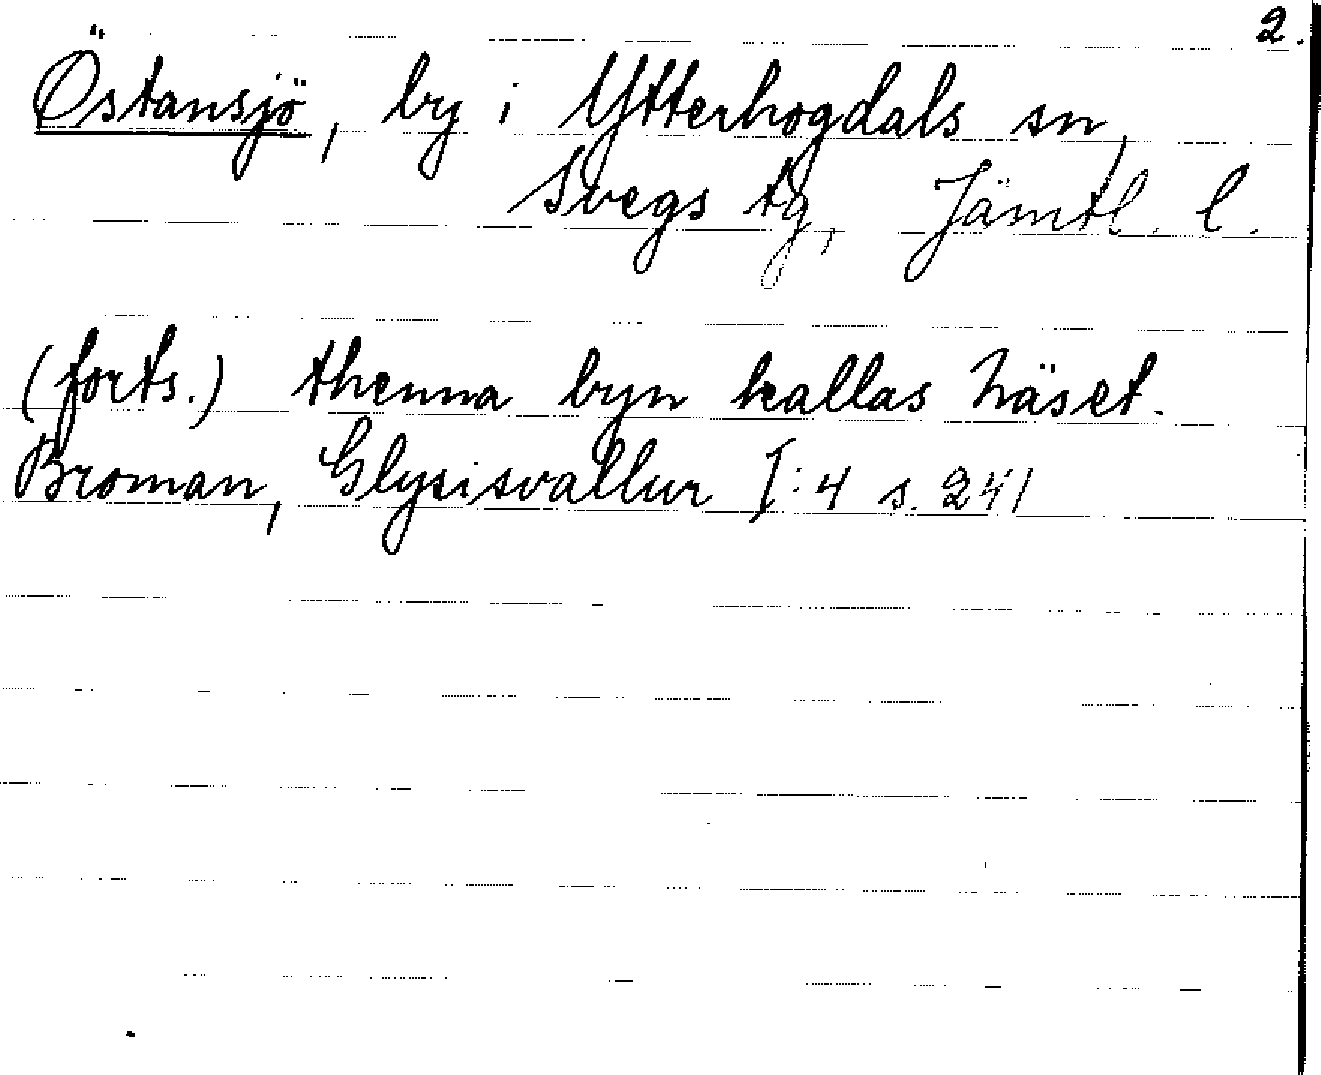 2.
Östansjö, by i Ytterhogdals sn,
Svegs tg, Jämtl. l.
(forts.) thenna byn kallas Näset.
Broman, Glysisvallur I:4 s. 241